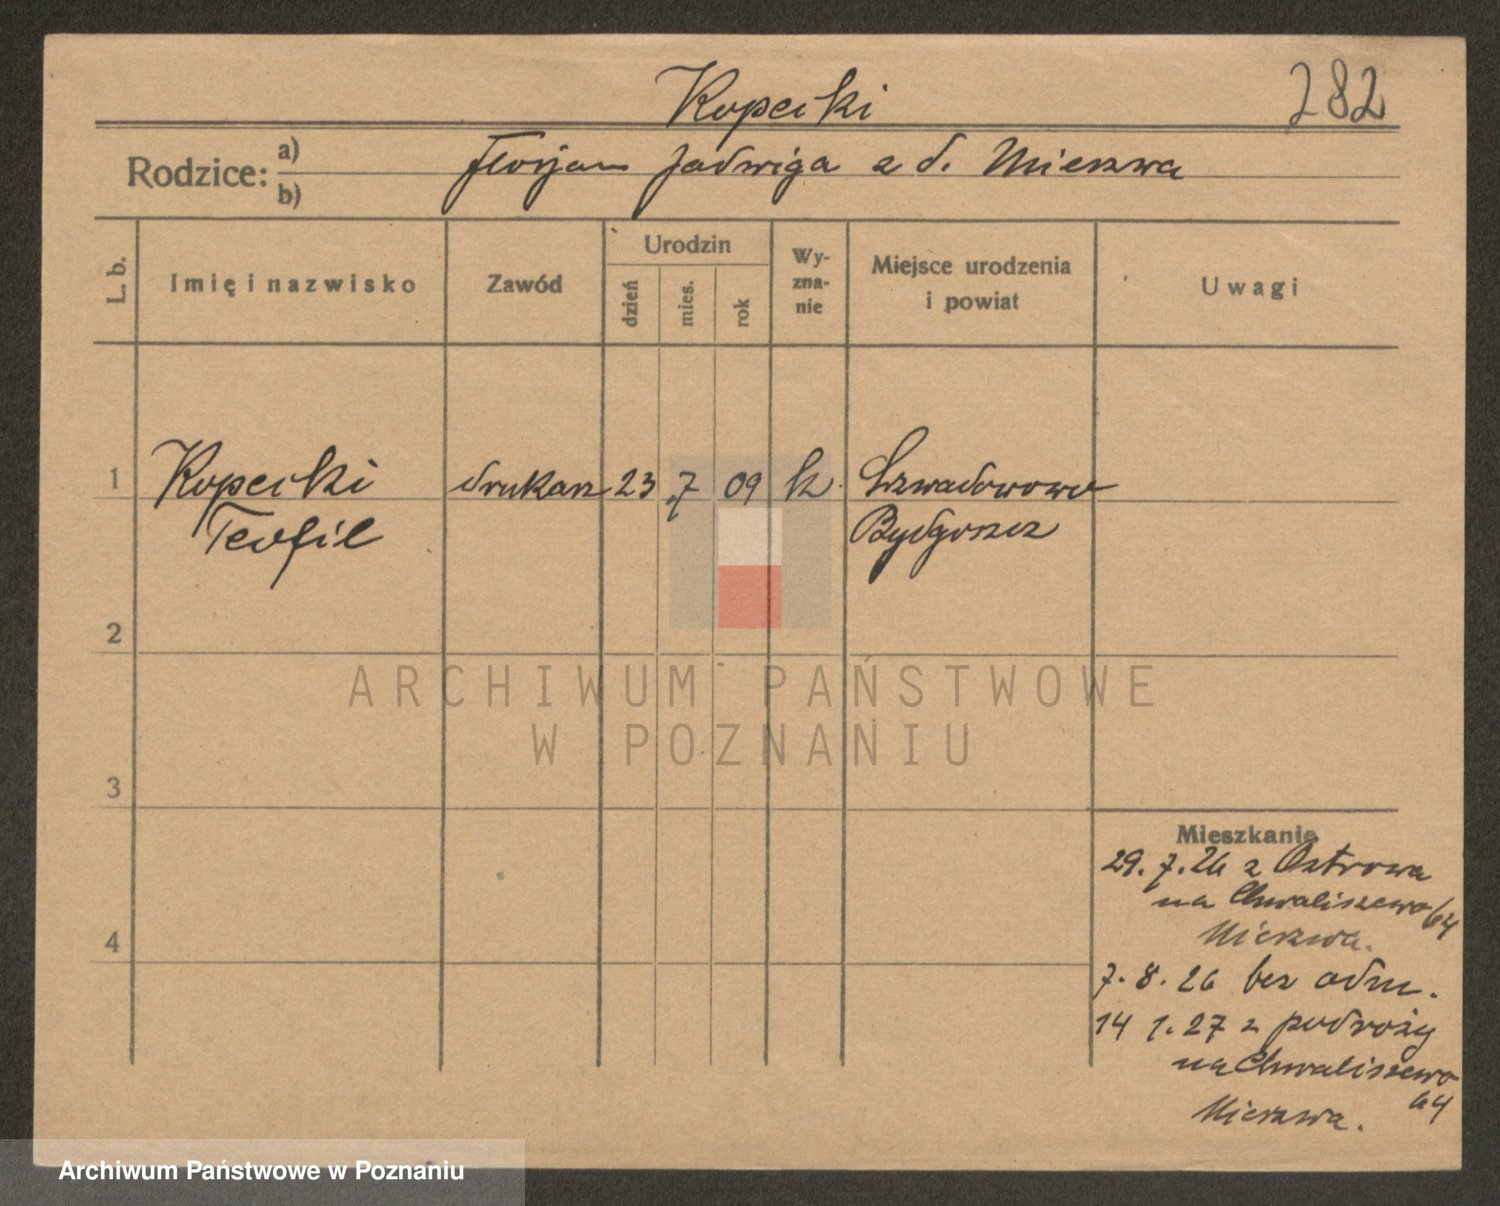 282
Kopecki
Rodzice: a) b) Florjan Jadwiga z d. Mierzwa
L. b. Imię i nazwisko Zawód Urodzin dzień mies. rok Wyznanie Miejsce urodzenia i powiat Uwagi
1 Kopecki drukarz 23 7 09 k.
Teofil Bydgoszcz
2
3
4
Mieszkanie
29. 7. 26 z Ostrowa
na Chwaliszewo 64
Mierzwa.
7. 8. 26 bez odm.
14 1. 27 z podroży
na Chwaliszewo
64
Mierzwa.
ARCHIWUM PAŃSTWOWE
W POZNANIU
Archiwum Państwowe w Poznaniu